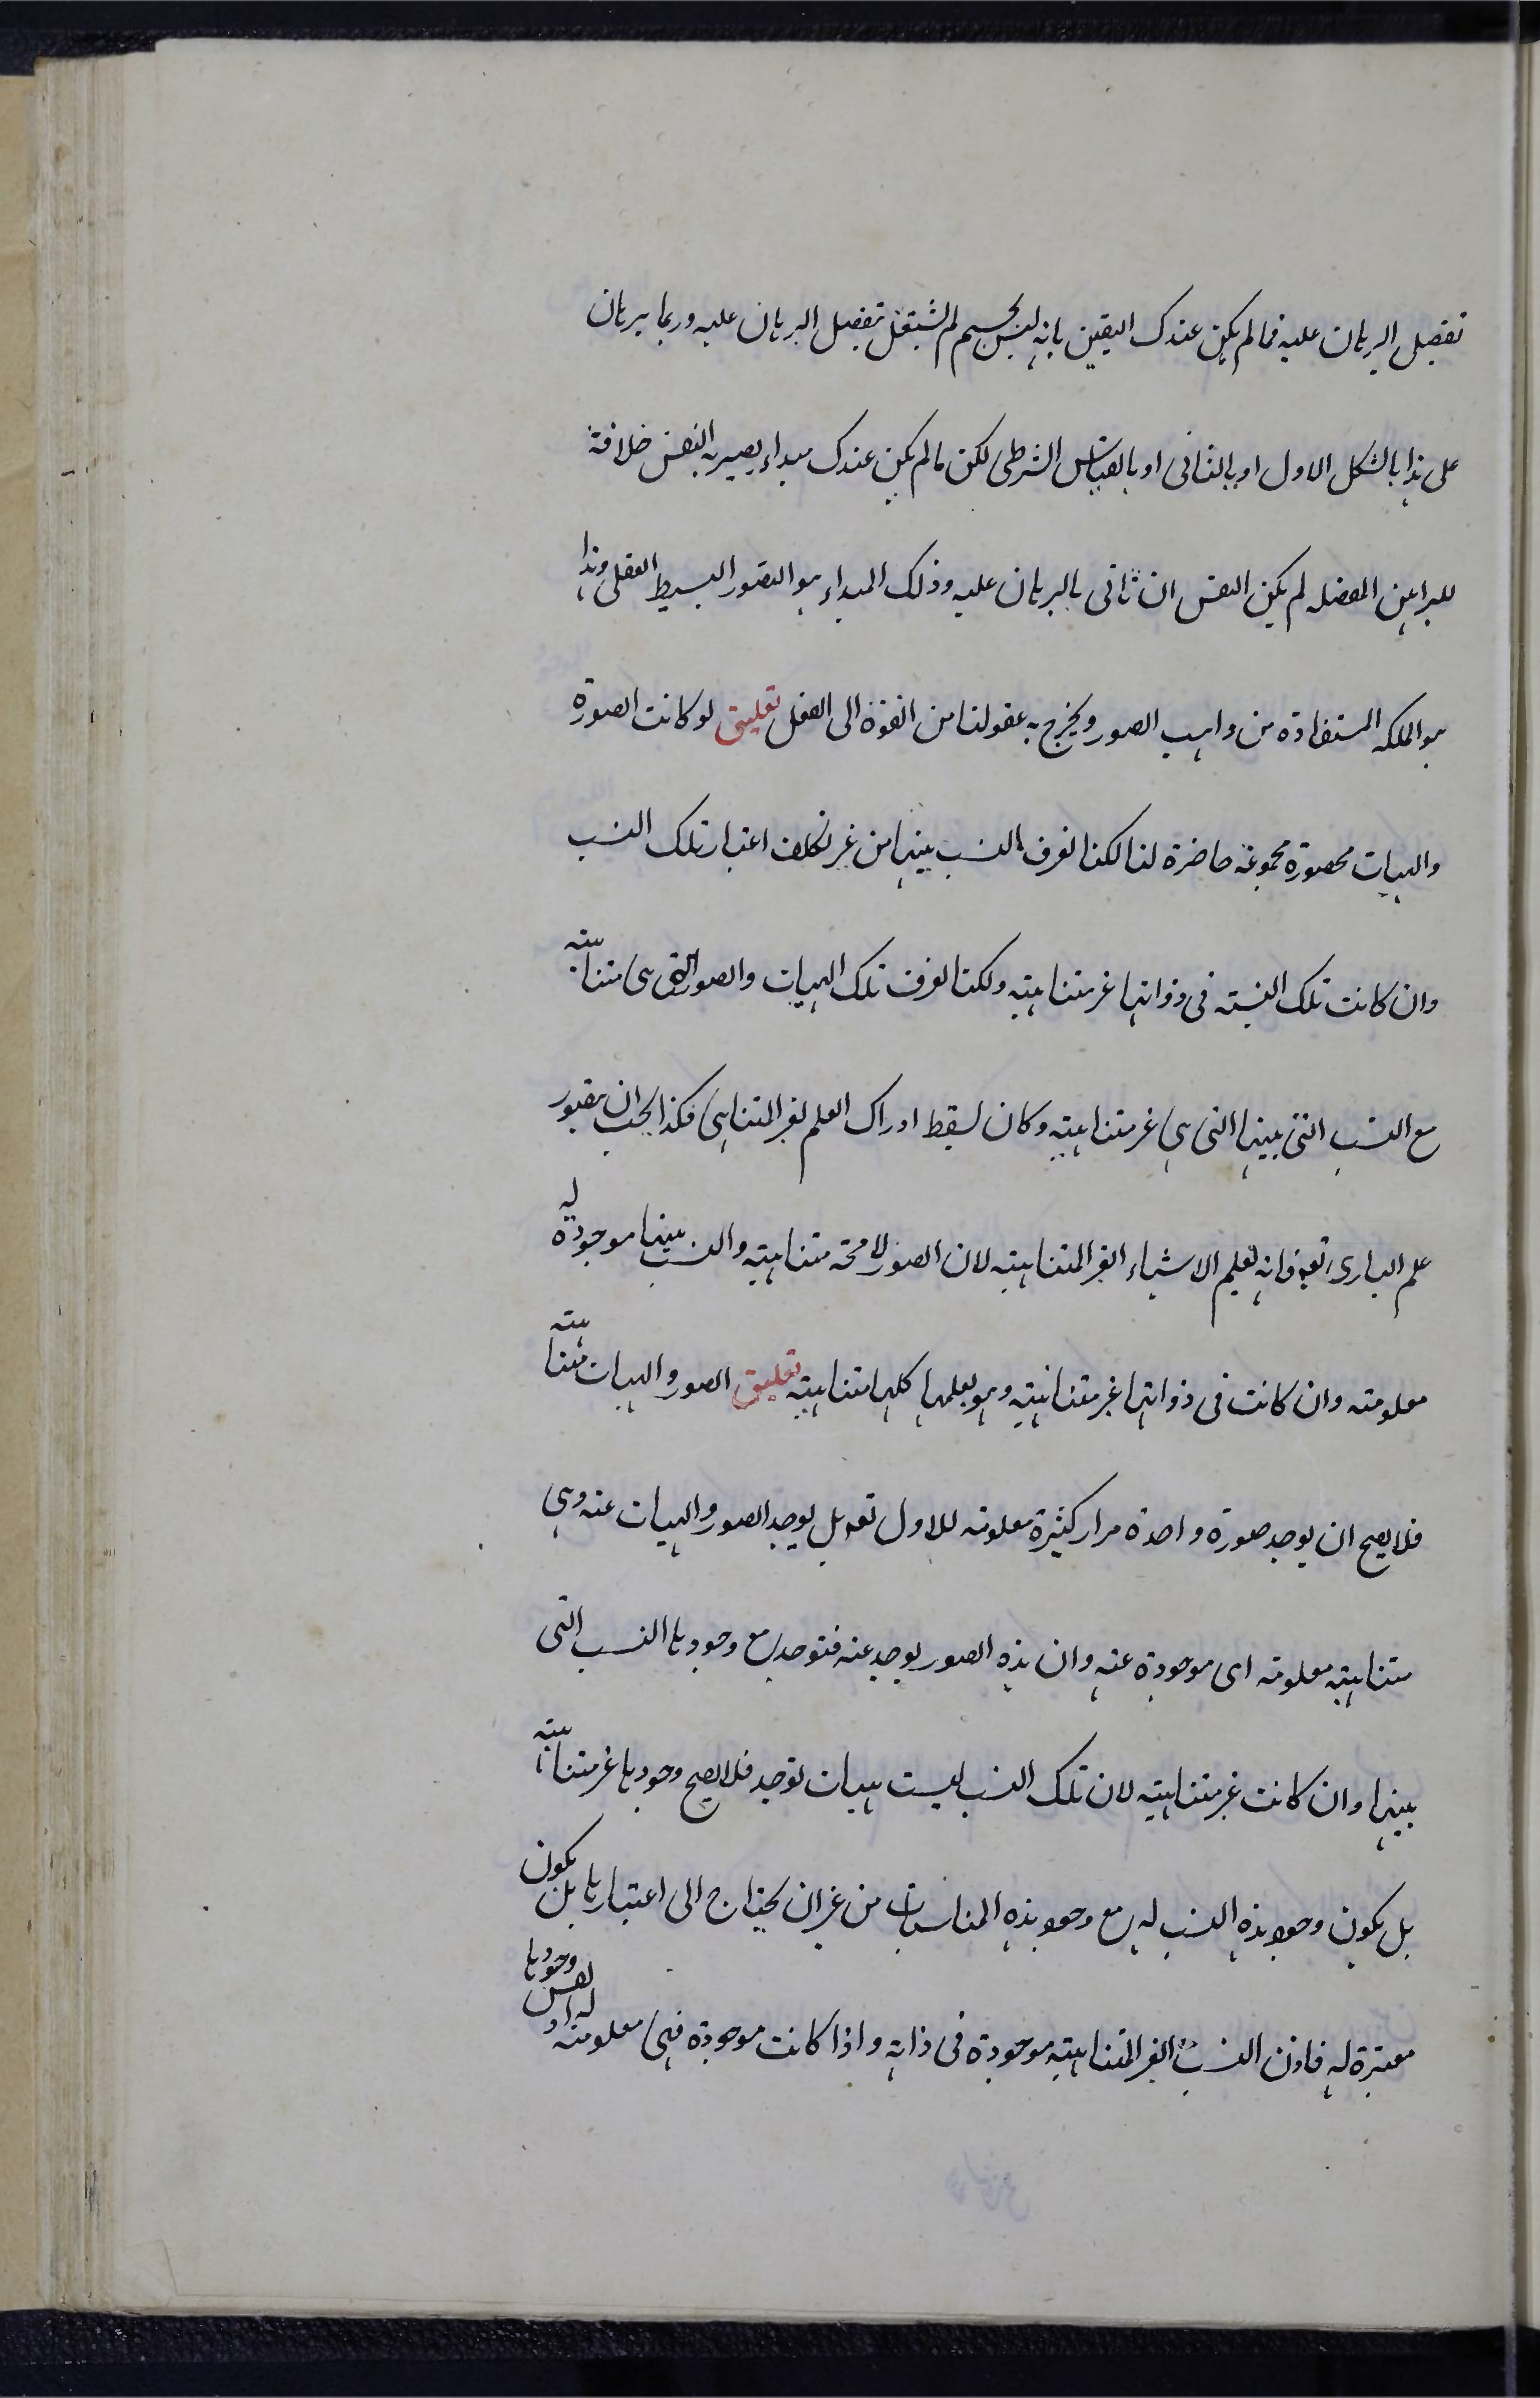 تفصيل البرهان عليه فما لم يكن عندك اليقين بانه ليس بجسم لم تشتغل بتفصيل البرهان عليه وربما يبرهان
على هذا بالشكل الاول او بالثانى او بالقياس الشرطى لكن ما لم يكن عندك مبداء يصير به النفس خلاقة
للبراهين المفصله لم يكن النفس ان تاتى بالبرهان عليه وذلك المبداء هو التصور البسيط العقلى وهذا
هو الملكه المستفادة من واهب الصور ويخرج به عقولنا من القوة الى الفعل تعليق لو كانت الصورة
والهيات محصورة مجموعة حاضرة لنا لكنا نعرف النسب بينها من غير تكلف اعتبار تلك النسب
وان كانت تلك النسبة فى ذواتها غير متناهيته ولكنا نعرف تلك الهيات والصور التى هى متناهيته
مع النسب التى بينها التى هى غير متناهيته وكان يسقط ادراك العلم لغير المتناهى فكذا يجب ان يتصور
علم البارى تعه وانه يعلم الاشياء الغير المتناهيته لان الصور لا محة متناهيته والنسب بينها موجودة له
معلومته وان كانت فى ذواتها غير متناهيته وهو يعلمها كلها متناهيته تعليق الصور والهيات متناهيته
فلا يصح ان يوجد صورة واحدة مرار كثيرة معلومته للاول تعه بل يوجد الصور والهيات عنه وهى
متناهيته معلومته اى موجودة عنه وان هذه الصور يوجد عنه فتوجد مع وجودها النسب التى
بينها وان كانت غير متناهيته لان تلك النسب ليست هيات توجد فلا يصح وجودها غير متناهيته
بل يكون وجود هذه النسب له مع وجود هذه المناسبات من غير ان يحتاج الى اعتبارها بل يكون
معتبرة له فاذن النسب الغير المتناهيته موجودة فى ذاته واذا كانت موجودة فهى معلومته له اذ نفس وجودها